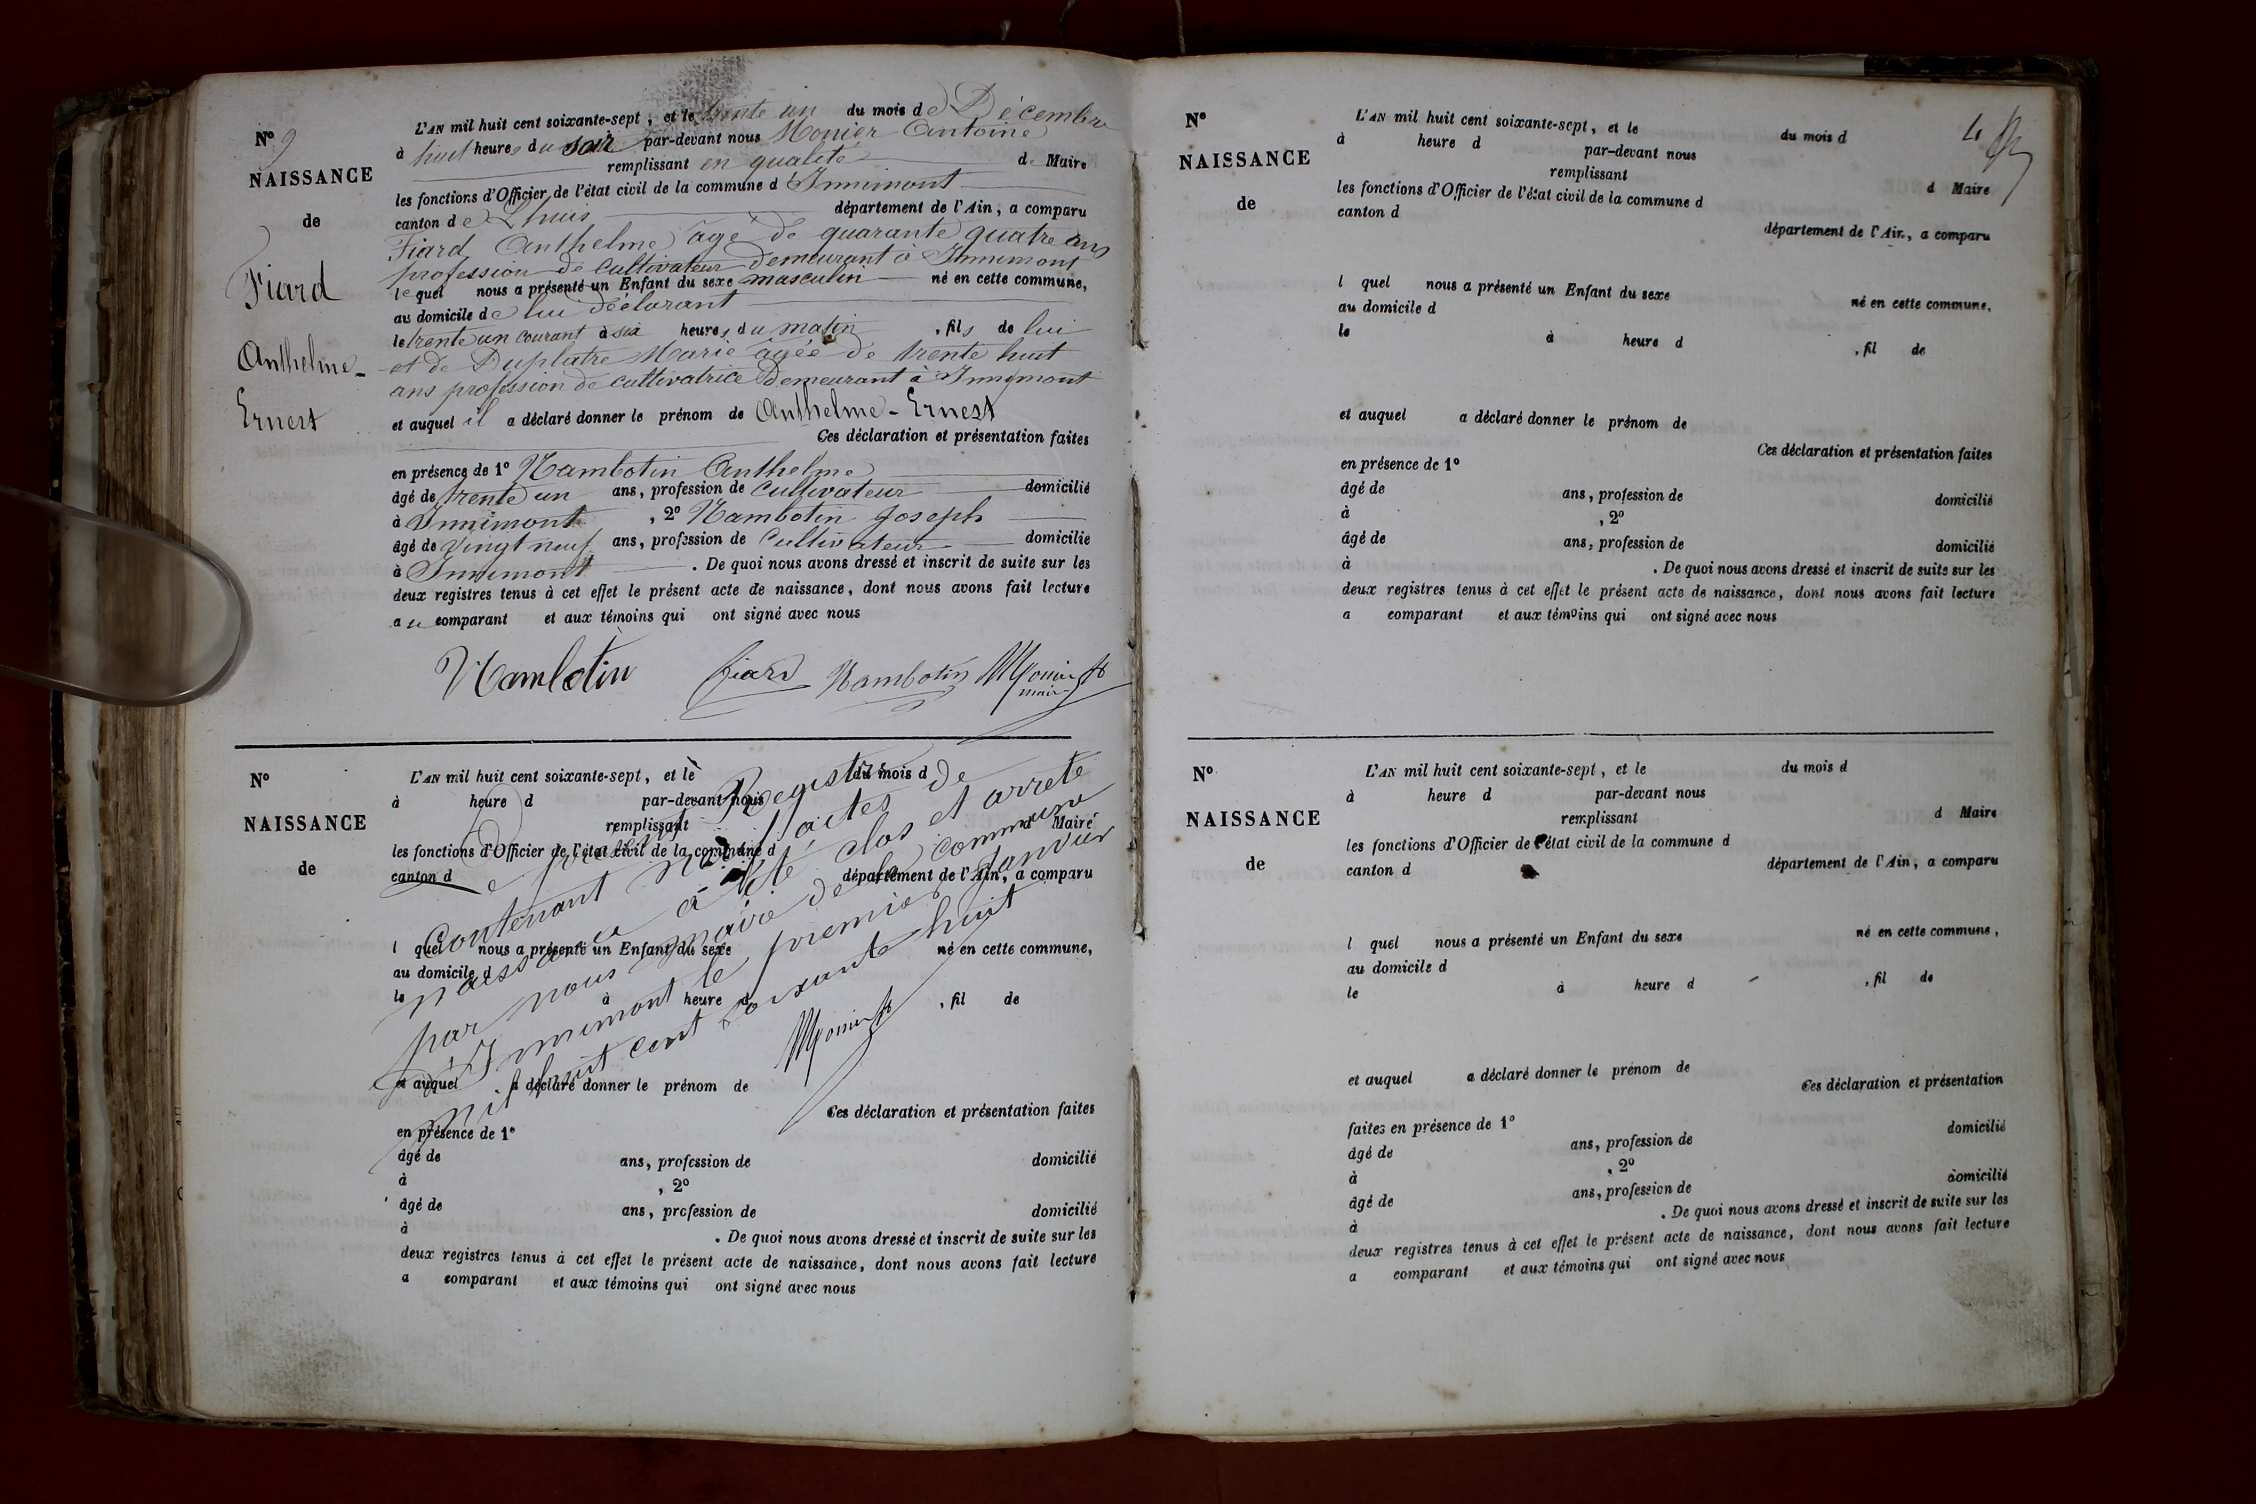 N° 9
NAISSANCE
de
Fiard
Anthelme-
Ernest
L'AN mil huit cent soixante-sept, et le trente un du mois de Décembre
à huit heures du soir par-devant nous Monier Antoine
remplissant en qualité de Maire
les fonctions d'Officier de l'état civil de la commune d'Innimont
canton de Lhuis département de l'Ain, a comparu
Fiard Anthelme âgé de quarante quatre ans
profession de cultivateur demeurant à Innimont
lequel nous a présenté un Enfant du sexe masculin né en cette commune,
au domicile de lui déclarant
le trente un courant à six heures du matin, fils de lui
et de Duplatre Marie âgée de trente huit
ans profession de cultivatrice demeurant à Innimont
et auquel il a déclaré donner le prénom de Anthelme-Ernest
Ces déclaration et présentation faites
en présence de 1° Nambotin Anthelme
âgé de trente un ans, profession de cultivateur domicilié
à Innimont, 2° Nambotin Joseph
âgé de vingt neuf ans, profession de cultivateur domicilié
à Innimont. De quoi nous avons dressé et inscrit de suite sur les
deux registres tenus à cet effet le présent acte de naissance, dont nous avons fait lecture
au comparant et aux témoins qui ont signé avec nous
Nambotin Fiard Nambotin Monier
maire
N°
NAISSANCE
de
L'AN mil huit cent soixante-sept, et le du mois d
à heure d par-devant nous
remplissant d Maire
les fonctions d'Officier de l'état civil de la commune d
canton d département de l'Ain, a comparu
l quel nous a présenté un Enfant du sexe né en cette commune,
au domicile d
le à heure d , fil de
et auquel a déclaré donner le prénom de
Ces déclaration et présentation faites
en présence de 1°
âgé de ans, profession de domicilié
à , 2°
âgé de ans, profession de domicilié
à . De quoi nous avons dressé et inscrit de suite sur les
deux registres tenus à cet effet le présent acte de naissance, dont nous avons fait lecture
a comparant et aux témoins qui ont signé avec nous
Le présent Registre
Contenant neuf actes de
naissance a été clos et arrêté
par nous maire de la commune
d'Innimont le premier Janvier
mil huit cent soixante huit
Monier
4
N°
NAISSANCE
de
L'AN mil huit cent soixante-sept, et le du mois d
à heure d par-devant nous
remplissant d Maire
les fonctions d'Officier de l'état civil de la commune d
canton d département de l'Ain, a comparu
l quel nous a présenté un Enfant du sexe né en cette commune,
au domicile d
le à heure d , fil de
et auquel a déclaré donner le prénom de
Ces déclaration et présentation faites
en présence de 1°
âgé de ans, profession de domicilié
à , 2°
âgé de ans, profession de domicilié
à . De quoi nous avons dressé et inscrit de suite sur les
deux registres tenus à cet effet le présent acte de naissance, dont nous avons fait lecture
a comparant et aux témoins qui ont signé avec nous
N°
NAISSANCE
de
L'AN mil huit cent soixante-sept, et le du mois d
à heure d par-devant nous
remplissant d Maire
les fonctions d'Officier de l'état civil de la commune d
canton d département de l'Ain, a comparu
l quel nous a présenté un Enfant du sexe né en cette commune,
au domicile d
le à heure d , fil de
et auquel a déclaré donner le prénom de
Ces déclaration et présentation
faites en présence de 1° domicilié
âgé de ans, profession de
à , 2° domicilié
âgé de ans, profession de
à . De quoi nous avons dressé et inscrit de suite sur les
deux registres tenus à cet effet le présent acte de naissance, dont nous avons fait lecture
a comparant et aux témoins qui ont signé avec nous